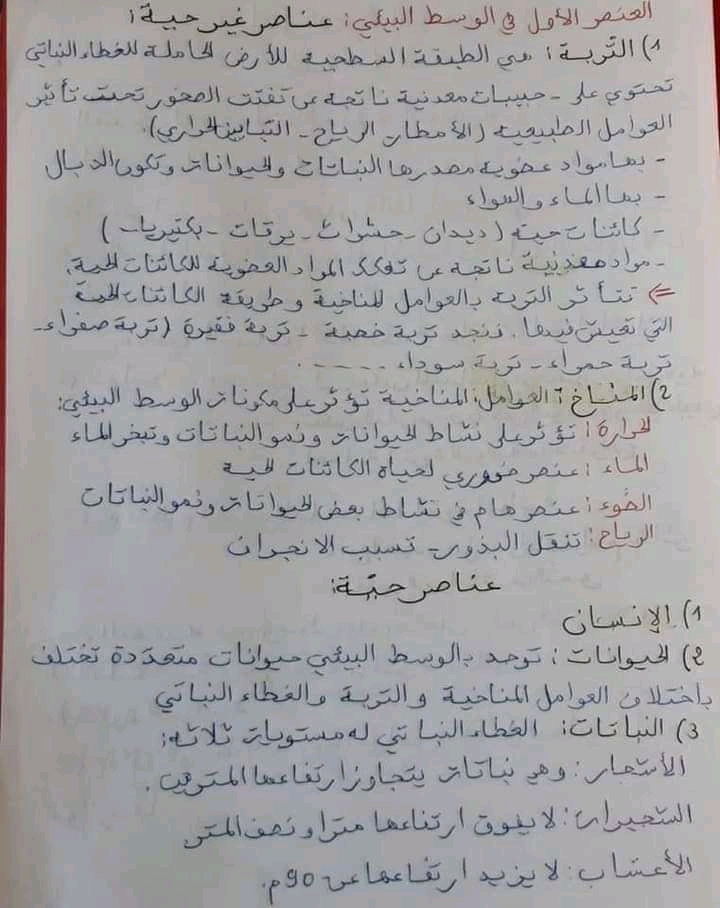 العنصر الأول في الوسط البيئي: عناصر غير حية:
1) التربة: هي الطبقة السطحية للأرض الحاملة للغطاء النباتي
تحتوي على - حبيبات معدنية ناتجة عن تفتت الصخور تحت تأثير
العوامل الطبيعية (الأمطار - الرياح - التباين الحراري).
- بها مواد عضوية مصدرها النباتات والحيوانات وتكون الدبال
- بها الماء والهواء
- كائنات حية (ديدان - حشرات - يرقات - بكتيريا...)
- مواد معدنية ناتجة عن تفكك المواد العضوية للكائنات الحية.
<= تتأثر التربة بالعوامل المناخية و طريقة الكائنات الحية
التي تعيش فيها. فنجد تربة خصبة - تربة فقيرة (تربة صفراء -
تربة حمراء - تربة سوداء .....
2) المناخ: العوامل المناخية تؤثر على مكونات الوسط البيئي:
الحرارة: تؤثر على نشاط الحيوانات ونمو النباتات وتبخر الماء
الماء: عنصر ضروري لحياة الكائنات الحية
الضوء: عنصر هام في نشاط بعض الحيوانات ونمو النباتات
الرياح: تنقل البذور - تسبب الانجراف
عناصر حية:
1) الإنسان
2) الحيوانات: توجد بالوسط البيئي حيوانات متعددة تختلف
باختلاف العوامل المناخية والتربة والغطاء النباتي
3) النباتات: الغطاء النباتي له مستويات ثلاثة:
الأشجار: وهي نباتات يتجاوز ارتفاعها المترين.
الشجيرات: لا يفوق ارتفاعها مترا ونصف المتر
الأعشاب: لا يزيد ارتفاعها عن 90م.